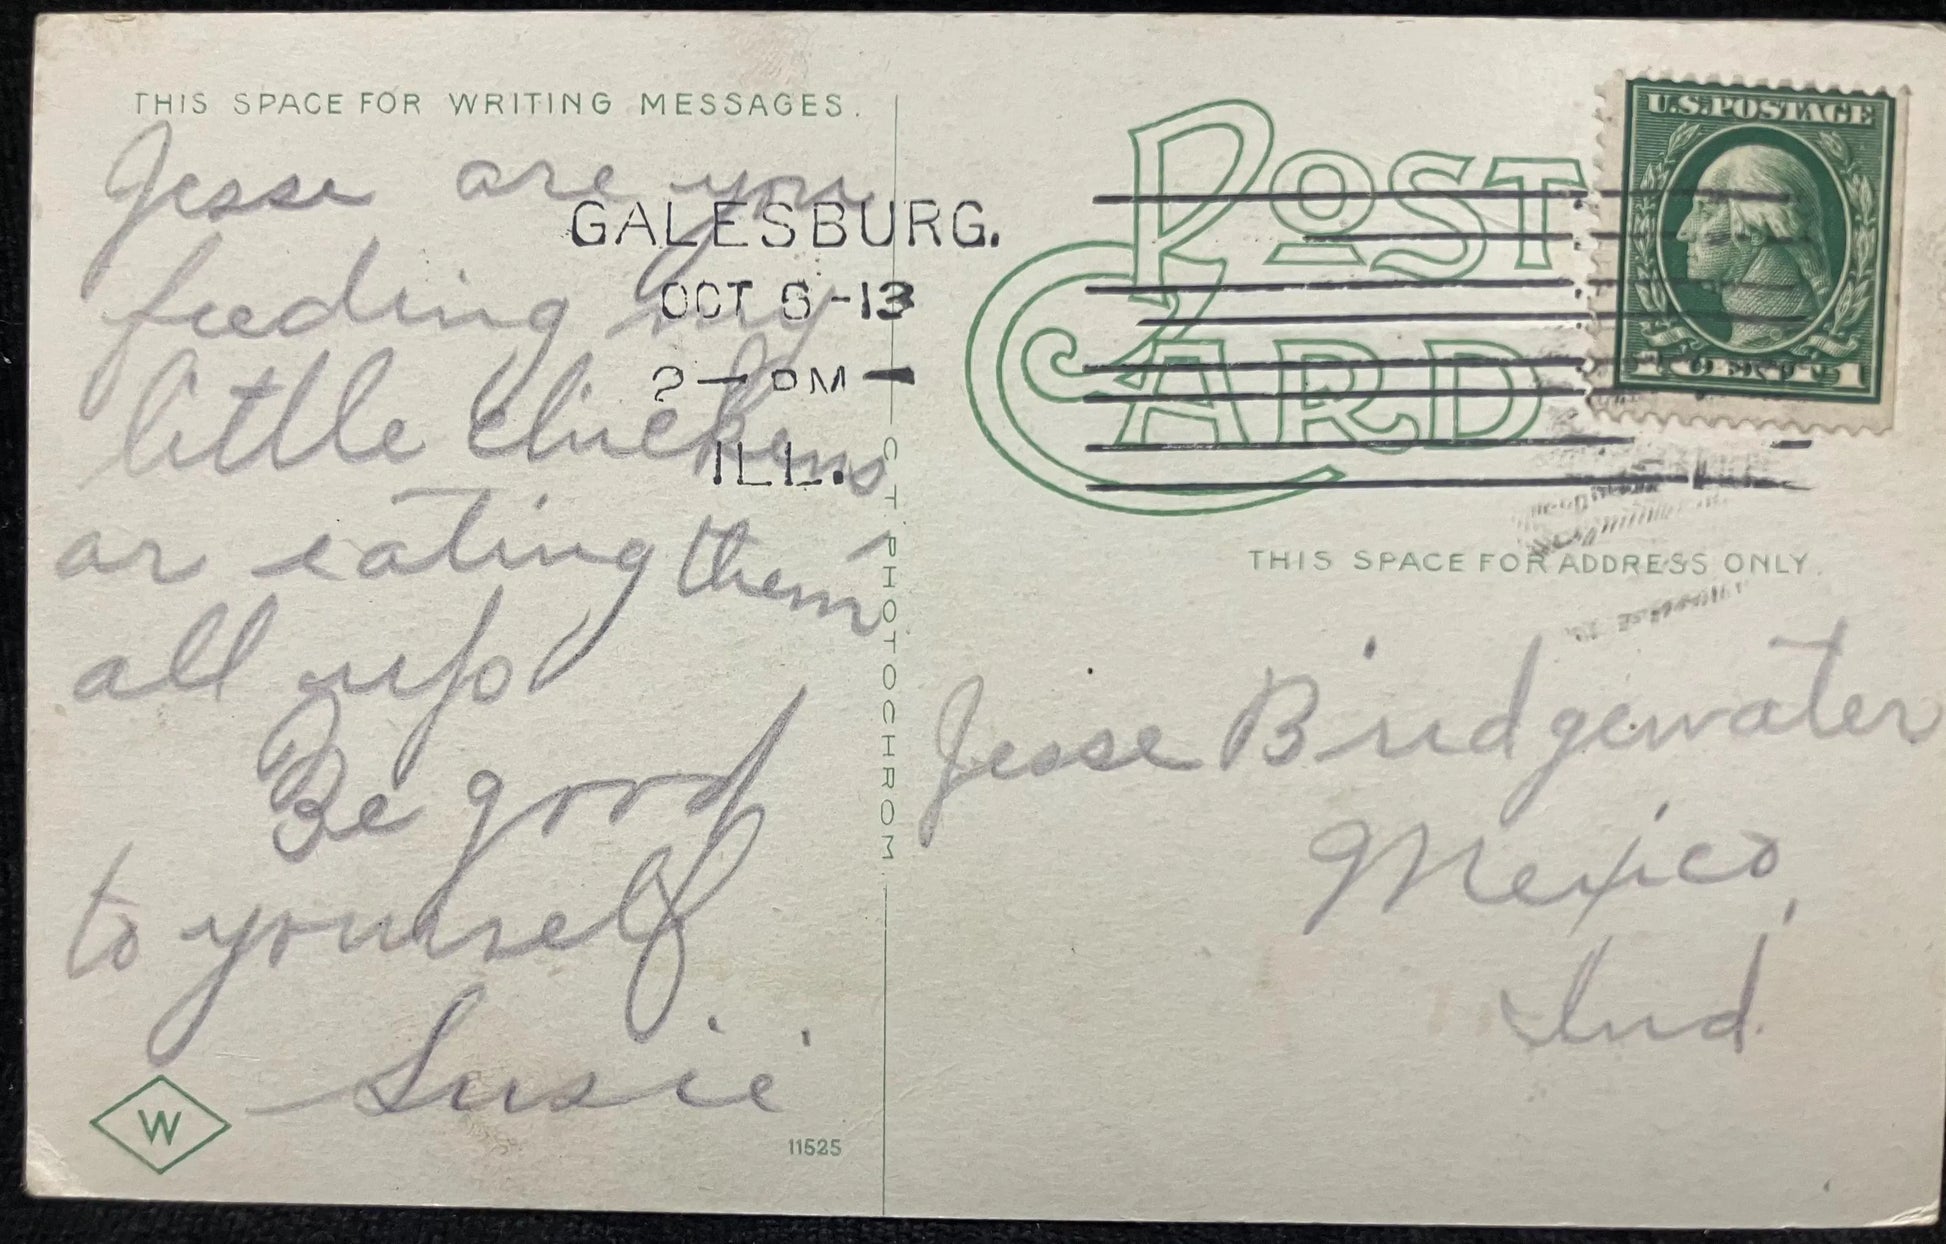 THIS SPACE FOR WRITING MESSAGES.
Jesse are you
feeding my
little chickens
or eating them
all up
Be good
to yourself
Susie
W
11525
GALESBURG.
OCT 6-13
2 — PM
ILL.
C T PHOTOCHROM
POST
CARD
U.S. POSTAGE
THIS SPACE FOR ADDRESS ONLY.
Jesse Bridgewater
Mexico,
Ind.